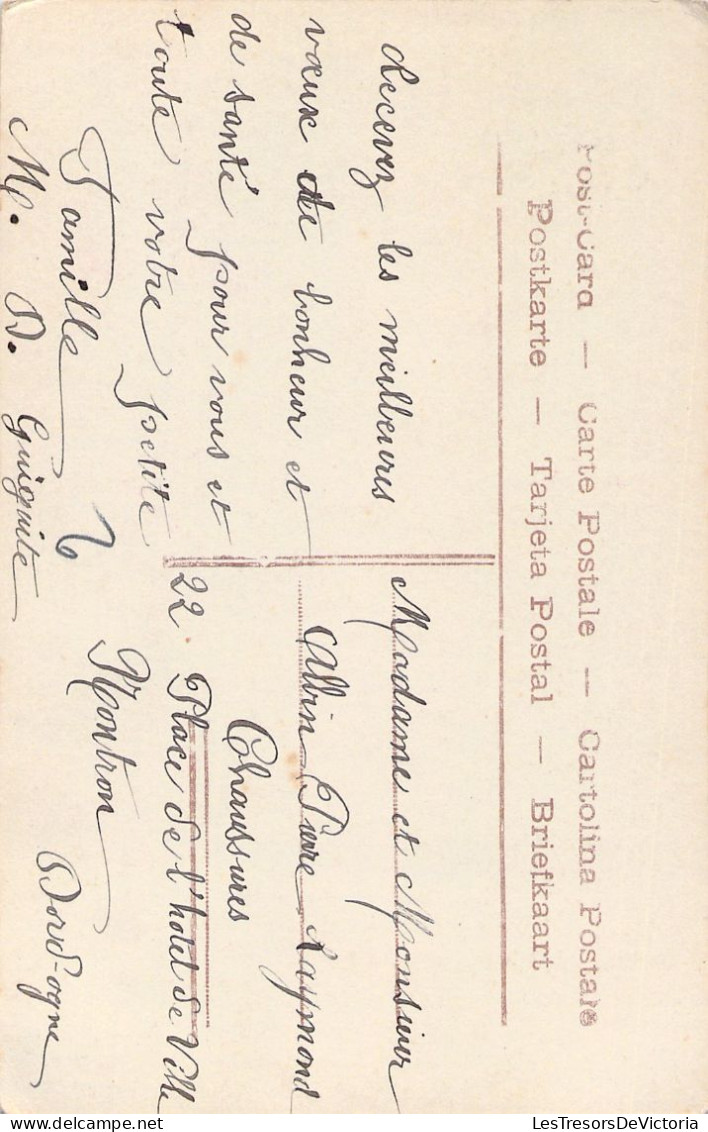 Post-Card — Carte Postale — Cartolina Postale
Postkarte — Tarjeta Postal — Briefkaart
Recevez les meilleures
vœux de bonheur et
de santé pour vous et
toute votre petite
Famille
M. D. Guiguite
Madame et Monsieur
Albin Pierre Raymond
Chaussures
22 Place de l'hotel de Ville
Montron
Dord-ogne
LesTresorsDeVictoria